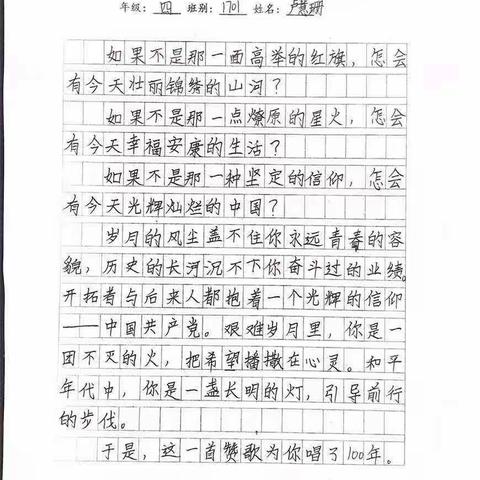 年级：四 班别：1701 姓名：卢慧珊
如果不是那一面高举的红旗，怎会
有今天壮丽锦绣的山河？
如果不是那一点燎原的星火，怎会
有今天幸福安康的生活？
如果不是那一种坚定的信仰，怎会
有今天光辉灿烂的中国？
岁月的风尘盖不住你永远青春的容
貌，历史的长河沉不下你奋斗过的业绩。
开拓者与后来人都抱着一个光辉的信仰
——中国共产党。艰难岁月里，你是一
团不灭的火，把希望播撒在心灵。和平
年代中，你是一盏长明的灯，引导前行
的步伐。
于是，这一首赞歌为你唱了100年。